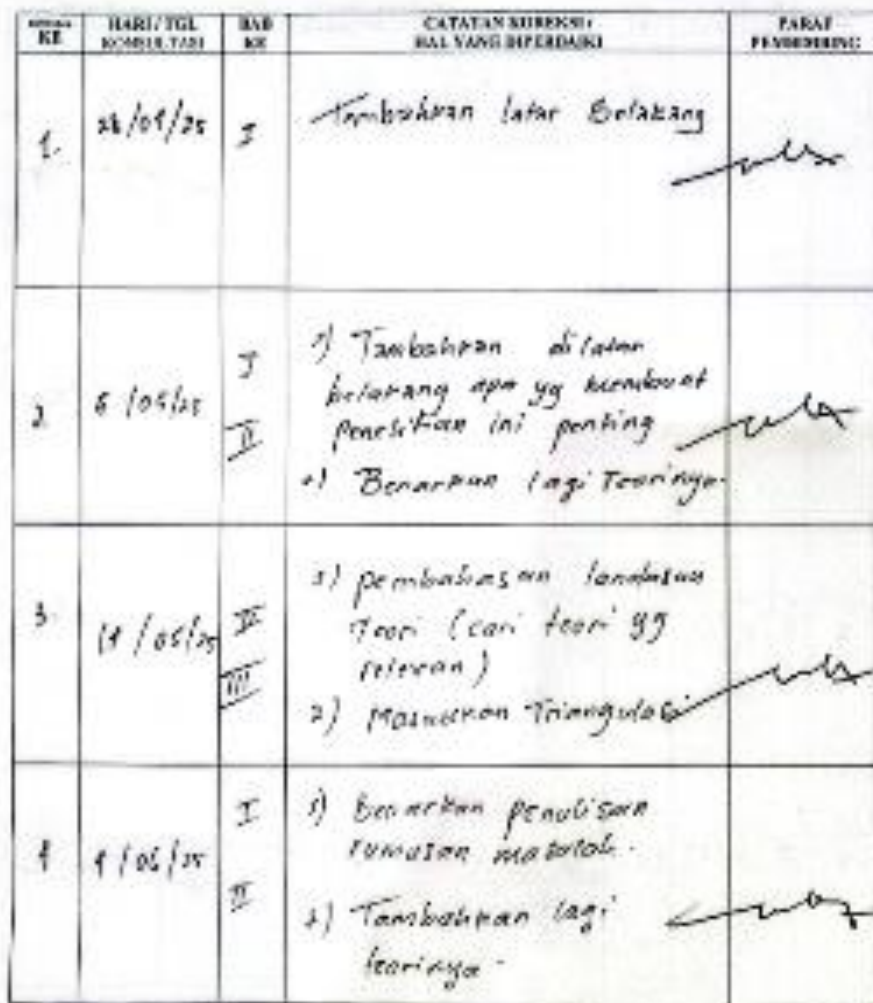 KE
HARI / TGL
KONSULTASI
BAB
KE
CATATAN KOREKSI /
HAL YANG DIPERBAIKI
PARAF
PEMBIMBING
1.
/25
I
Tambahkan latar Belakang
2
/05/25
I
II
1) Tambahkan dilatar
belakang apa yg membuat
penelitian ini penting
2) Benarkan lagi Teorinya.
3.
/05/25
III
1) pembahasan landasan
Teori (cari teori yg
relevan)
2) Masukkan Triangulasi
4
/06/25
I
II
1) Benarkan penulisan
rumusan masalah.
2) Tambahkan lagi
teorinya.